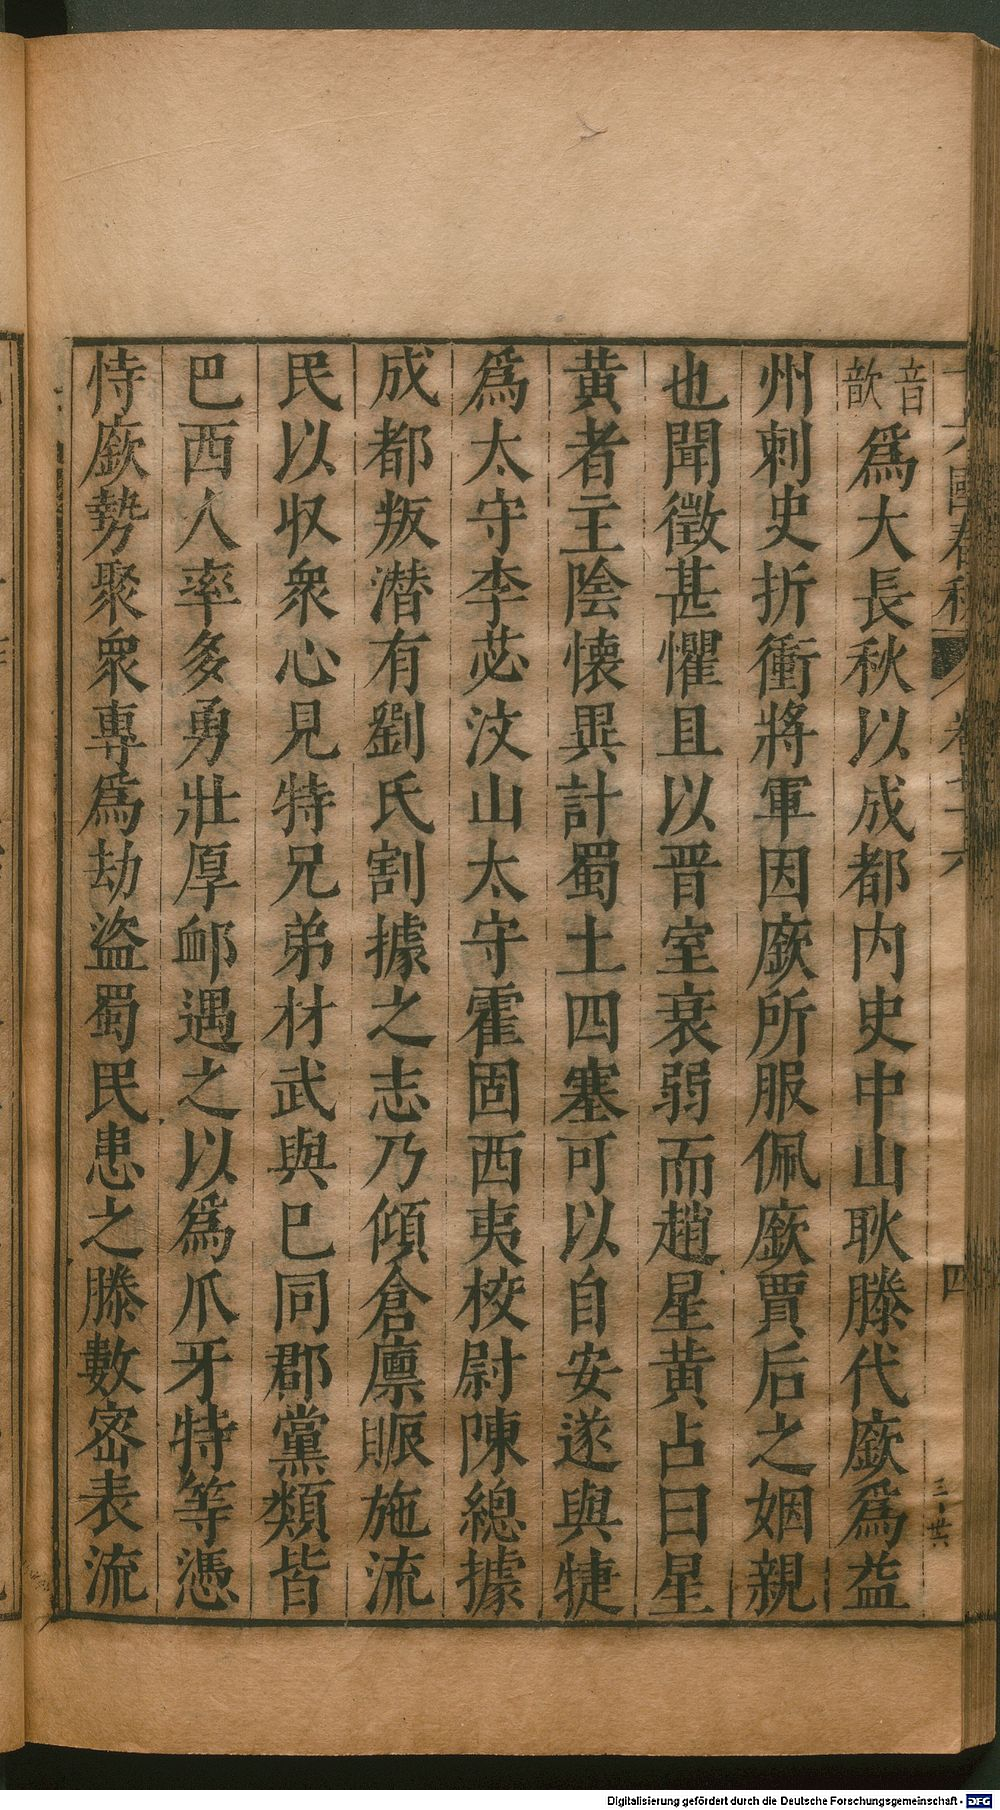 音歆爲大長秋以成都内史中山耿滕代廞爲益
州刺史折衝將軍因廞所服佩廞賈后之姻親
也聞徵甚懼且以晋室衰弱而趙星黄占曰星
黄者主陰懐異計蜀土四塞可以自安遂與犍
爲太守李苾汶山太守霍固西夷校尉陳總據
成都叛潜有劉氏割據之志乃傾倉廪賑施流
民以收衆心見特兄弟材武與巳同郡黨類皆
巴西人率多勇壯厚䘏遇之以爲爪牙特等憑
恃廞勢聚衆專爲劫盜蜀民患之滕數密表流
國春秋
四
Digitalisierung gefördert durch die Deutsche Forschungsgemeinschaft - DFG